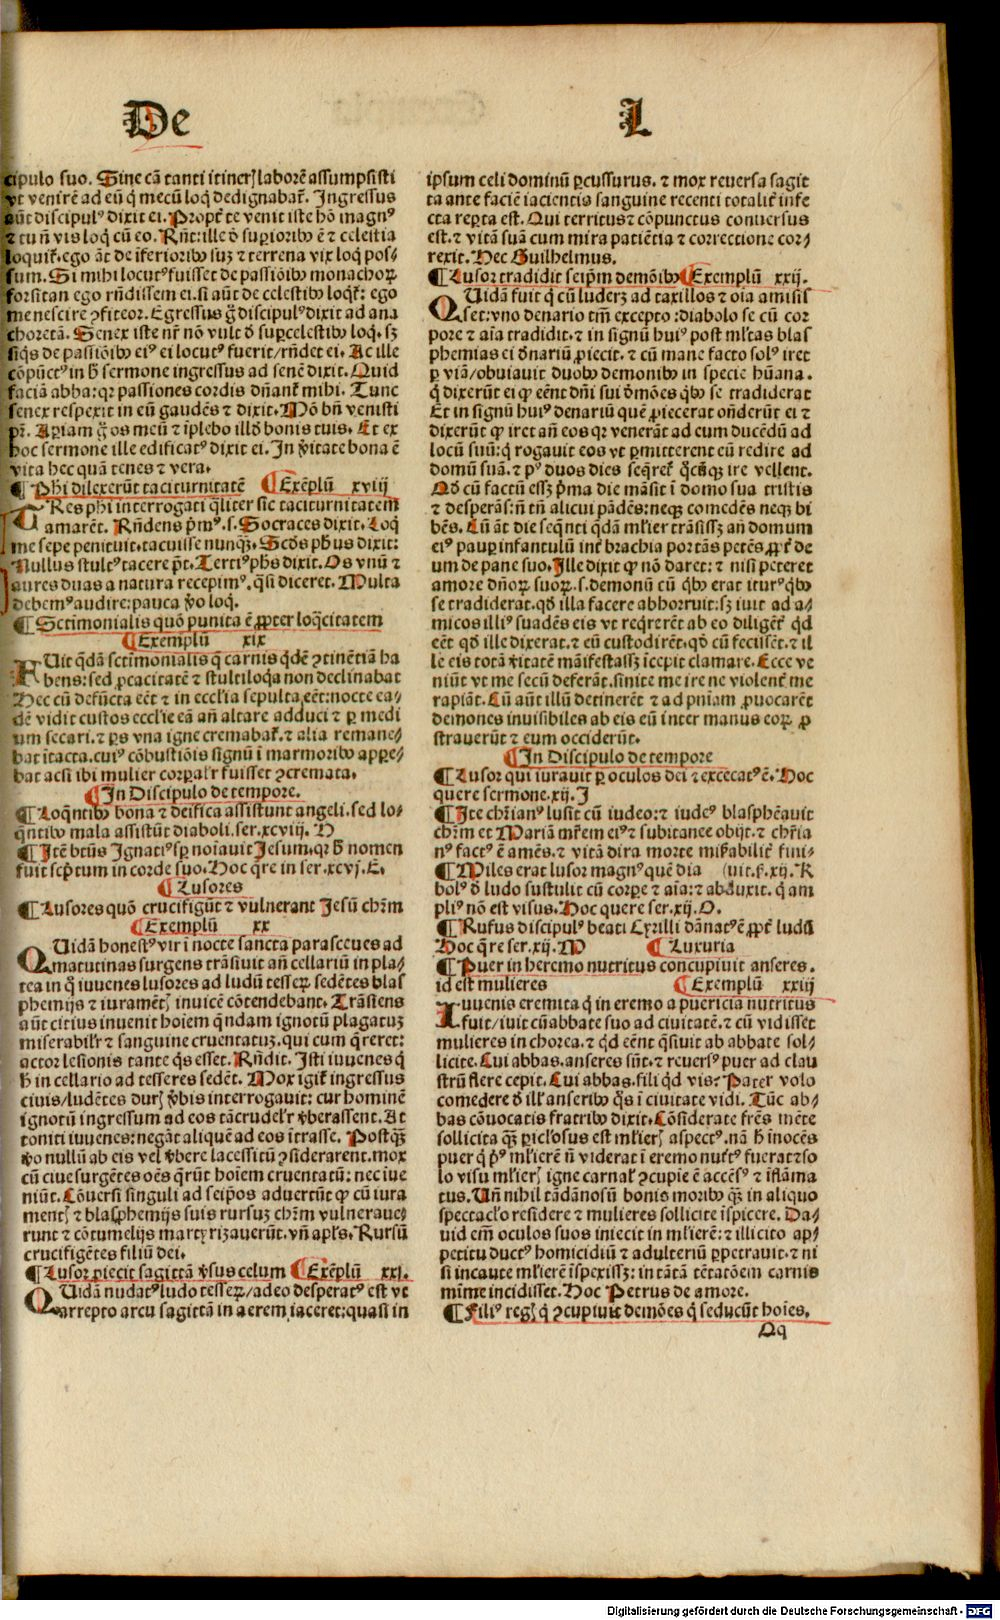 De
L
cipulo suo. Sine cā tanti itineꝝ laborē assumpsisti
vt venirē ad eū q̇ mecū loq̇ dedignabat̃. Ingressus
aūt discipulꝰ dixit ei. Propt̃ te venit iste hō magnꝰ
⁊ tu ñ vis loq̇ cū eo. Rñt ille ď suꝑioribꝰ ē ⁊ celestia
loquit̃. ego āt de īferioribꝰ suꝫ ⁊ terrena vix loq̇ pos⸗
sum. Si mihi locutꝰ fuisset de passiōibꝰ monachoꝝ
forsitan ego rñdissem ei. si aūt de celestibꝰ loq̃t̃: ego
me nescire ꝯfiteor. Egressus g̃ discipulꝰ dixit ad ana
choretā. Senex iste nr̃ nō vult ď suꝑcelestibꝰ loq̇. sꝫ
siq̇s de passiōibꝰ eiꝰ ei locutꝰ fuerit/rñdet ei. Ac ille
cōpūctꝰ in h̃ sermone ingressus ad senē dixit. Quid
faciā abba: qꝛ passiones cordis dñant̃ mihi. Tunc
senex respexit in eū gaudēs ⁊ dixit. Mō bñ venisti
pr̃. Aꝑiam g̃ os meū ⁊ īplebo illď bonis tuis. At ex
hoc sermone ille edificatꝰ dixit ei. In v̓itate bona ē
vita hec quā tenes ⁊ vera.
¶ Phi dilexerūt taciturnitatē ¶ Exēplū xviij
TRes phi interrogati q̄liter sic taciturnitatem
amarēt. Rñdens pˀmꝰ.s. Socrates dixit. Loq̇
me sepe penituit. tacuisse nunqꝫ. Scďs phˀus dixit:
Nullus stultꝰ tacere pt̃. Tertiꝰ phs dixit. Os vnū ⁊
aures duas a natura recepimꝰ. q̄si diceret. Multa
debemꝰ audire: pauca v̓o loq̇.
¶ Sctimonialis quō punita ē ꝓpter loq̄citatem
¶ Exemplū xix
FUit q̄dā sctimonialis q̄ carnis q̇dē ꝯtinētiā ha
bens: sed ꝓcacitatē ⁊ stultiloq̇a non declinabat
Hec cū defūcta eēt ⁊ in ecclˀia sepulta eēt: nocte ea⸗
dē vidit custos ecclˀie eā añ altare adduci ⁊ ꝑ medi
um secari. ⁊ ꝑs vna igne cremabat̃. ⁊ alia remane⸗
bat ītacta. cuiꝰ cōbustiōis signū i marmoribꝰ appe⸗
bat acsi ibi mulier corꝑalˀr fuisset ꝯcremata.
¶ In Discipulo de tempore.
¶ Loq̄ntibꝰ bona ⁊ deifica assistunt angeli. sed lo⸗
q̄ntibꝰ mala assistūt diaboli. ser.xcviij. H
¶ Itē btūs Ignatiꝰ sp̃ noīauit Jesum. qꝛ h̃ nomen
fuit scp̃tum in corde suo. Hoc q̄re in ser.xcvj.E.
¶ Lusores
¶ Lusores quō crucifigūt ⁊ vulnerant Jesū chrˀm
¶ Exemplū xx
QUidā honestꝰ vir ī nocte sancta parasceues ad
matutinas surgens trāsiuit añ cellariū in pla⸗
tea in q̇ iuuenes lusores ad ludū tesseꝝ sedētes blas
phemijs ⁊ iuramētꝭ inuicē cōtendebant. Trāsiens
aūt citius inuenit hoiem q̄ndam ignotū plagatuꝫ
miserabilˀr ⁊ sanguine cruentatuꝫ. qui cum q̄reret:
actor lesionis tante q̇s esset. Rñdit. Isti iuuenes q̇
h̃ in cellario ad tesseres sedēt. Mox igit̃ ingressus
ciuis/ludētes durꝭ v̓bis interrogauit: cur hominē
ignotū ingressum ad eos tā crudelˀr v̓berassent. At
toniti iuuenes: negāt aliquē ad eos ītrasse. Postqꝫ
v̓o nullū ab eis vel v̓bere lacessitū ꝯsiderarent. mox
cū ciue surgētes oēs q̄rūt hoīem cruentatū: nec iue
niūt. Cōuersi singuli ad seipˀos aduertūt ꝙ cū iura
mentꝭ ⁊ blasphemijs suis rursuꝫ chrˀm vulneraue⸗
runt ⁊ cōtumelijs martyrizauerūt. vñ aplˀs. Rursū
crucifigētes filiū dei.
¶ Lusor ꝓiecit sagittā v̓sus celum ¶ Exēplū xxj.
QUidā nudatꝰ ludo tesseꝝ/adeo desperatꝰ est vt
arrepto arcu sagittā in aerem iaceret: quasi in
ipsum celi dominū ꝑcussurus. ⁊ mox reuersa sagit
ta ante faciē iacientis sanguine recenti totalit̃ infe
cta reꝑta est. Qui territus ⁊ cōpunctus conuersus
est. ⁊ vitā suā cum mira patiētia ⁊ correctione cor⸗
rexit. Hec Guilhelmus.
¶ Lusor tradidit seipˀm demōibꝰ ¶ Exemplū xxij.
QUidā fuit q̇ cū luderꝫ ad taxillos ⁊ oīa amisis
set: vno denario tm̄ excepto: diabolo se cū cor
pore ⁊ aīa tradidit. ⁊ in signū huiꝰ post mlˀtas blas
phemias ei ďnariū ꝓiecit. ⁊ cū mane facto solꝰ iret
ꝑ viā/obuiauit duobꝰ demonibꝰ in specie hūana.
q̇ dixerūt ei ꝙ eēnt dñi sui ďmōes q̇bꝰ se tradiderat
Et in signū huiꝰ denariū quē ꝓiecerat oñderūt ei ⁊
dixerūt ꝙ iret añ eos qꝛ venerāt ad eum ducēdū ad
locū suū: q̇ rogauit eos vt ꝑmitterent eū redire ad
domū suā. ⁊ pꝰ duos dies seq̃rēt̃ q̇cūqꝫ ire vellent.
Qď cū factū essꝫ pˀma die māsit ī domo sua tristis
⁊ desperās: ñ tñ alicui pādēs: neqꝫ comedēs neqꝫ bi
bēs. Cū āt die seq̄nti q̄dā mlˀier trāsissꝫ añ domum
eiꝰ pauꝑ infantulū int̃ brachia portās petēs ꝓpt̃ de
um de pane suo. Ille dixit ꝙ nō daret: ⁊ nisi peteret
amore dñoꝝ suoꝝ.s. demonū cū q̇bꝰ erat iturꝰ q̇bꝰ
se tradiderat. qď illa facere abhorruit: sꝫ iuit ad a⸗
micos illiꝰ suadēs eis vt reqˀrerēt ab eo diligēt̃ q̇d
eēt qď ille dixerat. ⁊ eū custodirēt. qď cū fecissēt. ⁊ il
le eis totā v̓itatē māifestassꝫ īcepit clamare. Ecce ve
niūt vt me secū deferāt. sinite me ire ne violent̃ me
rapiāt. Cū aūt illū detinerēt ⁊ ad pniam ꝓuocarēt
demones inuisibiles ab eis eū inter manus eoꝝ ꝓ
strauerūt ⁊ eum occiderūt.
¶ In Discipulo de tempore
¶ Lusor qui iurauit ꝑ oculos dei ⁊ excecatꝰ ē. Hoc
quere sermone.xij.I
¶ Itē chrˀianꝰ lusit cū iudeo: ⁊ iudeꝰ blasphēauit
chrˀm et Mariā mrˀem eiꝰ ⁊ subitanee obijt. ⁊ chrˀia
nꝰ factꝰ ē amēs. ⁊ vitā dira morte mirabilit̃ fini⸗
¶ Miles erat lusor magnꝰ quē dia (uit.s.xij.K
bolꝰ ď ludo sustulit cū corꝑe ⁊ aīa: ⁊ abduxit. q̇ am
pliꝰ nō est visus. Hoc quere ser.xij.O.
¶ Rufus discipulꝰ beati Cyrilli dānatꝰ ē ꝓpt̃ ludū
Hoc q̄re ser.xij.M ¶ Luxuria
¶ Puer in heremo nutritus concupiuit anseres.
id est mulieres ¶ Exemplū xxiij
IUuenis eremita q̇ in eremo a puericia nutritus
fuit/iuit cū abbate suo ad ciuitatē. ⁊ cū vidisset
mulieres in chorea. ⁊ q̇d eēnt q̄siuit ab abbate sol⸗
licite. Cui abbas. anseres sūt. ⁊ reuersꝰ puer ad clau
strū flere cepit. Cui abbas. fili q̇d vis? Pater volo
comedere ď illˀ anseribꝰ q̇s i ciuitate vidi. Tūc ab⸗
bas cōuocatis fratribꝰ dixit. Cōsiderate frēs mēte
sollicita qꝫ ꝑiclˀosus est mlˀierꝭ aspectꝰ. nā h̃ inocēs
puer q̇ pˀꝰ mlˀierē ñ viderat ī eremo nutˀtꝰ fuerat: so
lo visu mlˀierꝭ igne carnalˀ ꝯcupiē ē accēsꝰ ⁊ īflāma
tus. Uñ nihil tā dānosū bonis moribꝰ qꝫ in aliquo
spectaclˀo residere ⁊ mulieres sollicite īspicere. Da⸗
uid em̄ oculos suos iniecit in mlˀierē: ⁊ illicito ap⸗
petitu ductꝰ homicidiū ⁊ adulteriū ꝑpetrauit. ⁊ ni
si incaute mlˀierē īspexissꝫ: in tātā tētatōem carnis
mīme incidisset. Hoc Petrus de amore.
¶ Filiꝰ regꝭ q̇ ꝯcupiuit demōes q̇ seducūt hoīes.
Qq
Digitalisierung gefördert durch die Deutsche Forschungsgemeinschaft - DFG